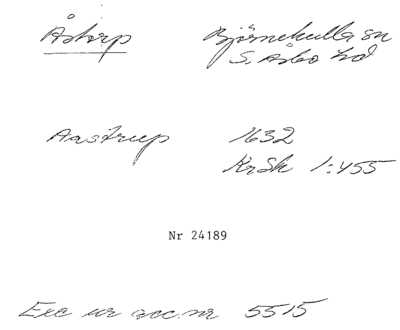 Åstorp Björnekulla sn
S. Åsbo hd
Aastrup 1632
KrSk 1:455
Nr 24189
Exc ur acc.nr 5515